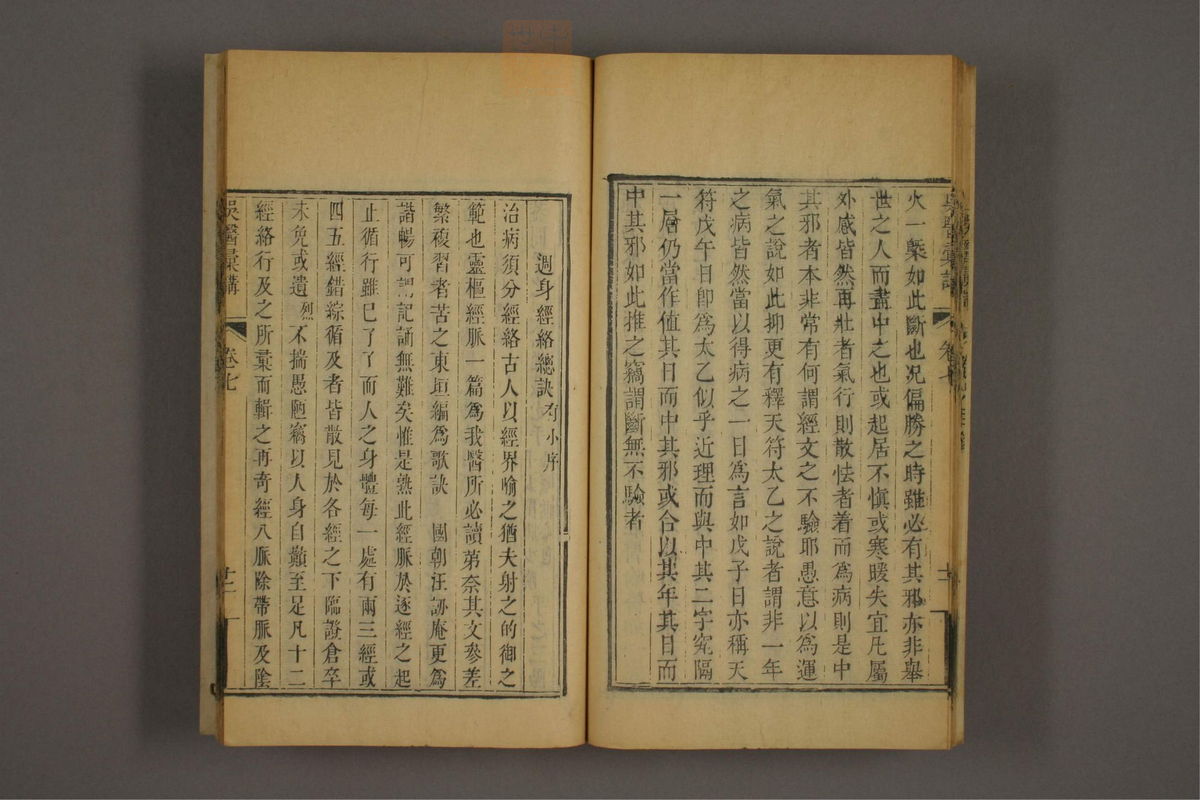 火一槩如此斷也况偏勝之時雖必有其邪亦非舉
世之人而盡中之也或起居不愼或寒暖失宜凡屬
外感皆然再壯者氣行則散怯者着而爲病則是中
其邪者本非常有何謂經文之不驗耶愚意以爲運
氣之說如此抑更有釋天符太乙之說者謂非一年
之病皆然當以得病之一日爲言如戊子日亦稱天
符戊午日卽爲太乙似乎近理而與中其二字究隔
一層仍當作值其日而中其邪或合以其年其日而
中其邪如此推之竊謂斷無不驗者
週身經絡總訣有小序
治病須分經絡古人以經界喻之猶夫射之的御之
範也靈樞經脈一篇爲我醫所必讀第奈其文參差
繁複習者苦之東垣編爲歌訣 國朝汪訒庵更爲
諧暢可謂記誦無難矣惟是熟此經脈於逐經之起
止循行雖已了了而人之身體每一處有兩三經或
四五經錯綜循及者皆散見於各經之下臨證倉卒
未免或遺烈不揣愚陋竊以人身自顚至足凡十二
經絡行及之所彙而輯之再奇經八脈除帶脈及陰
吳醫彙講 卷七 十二